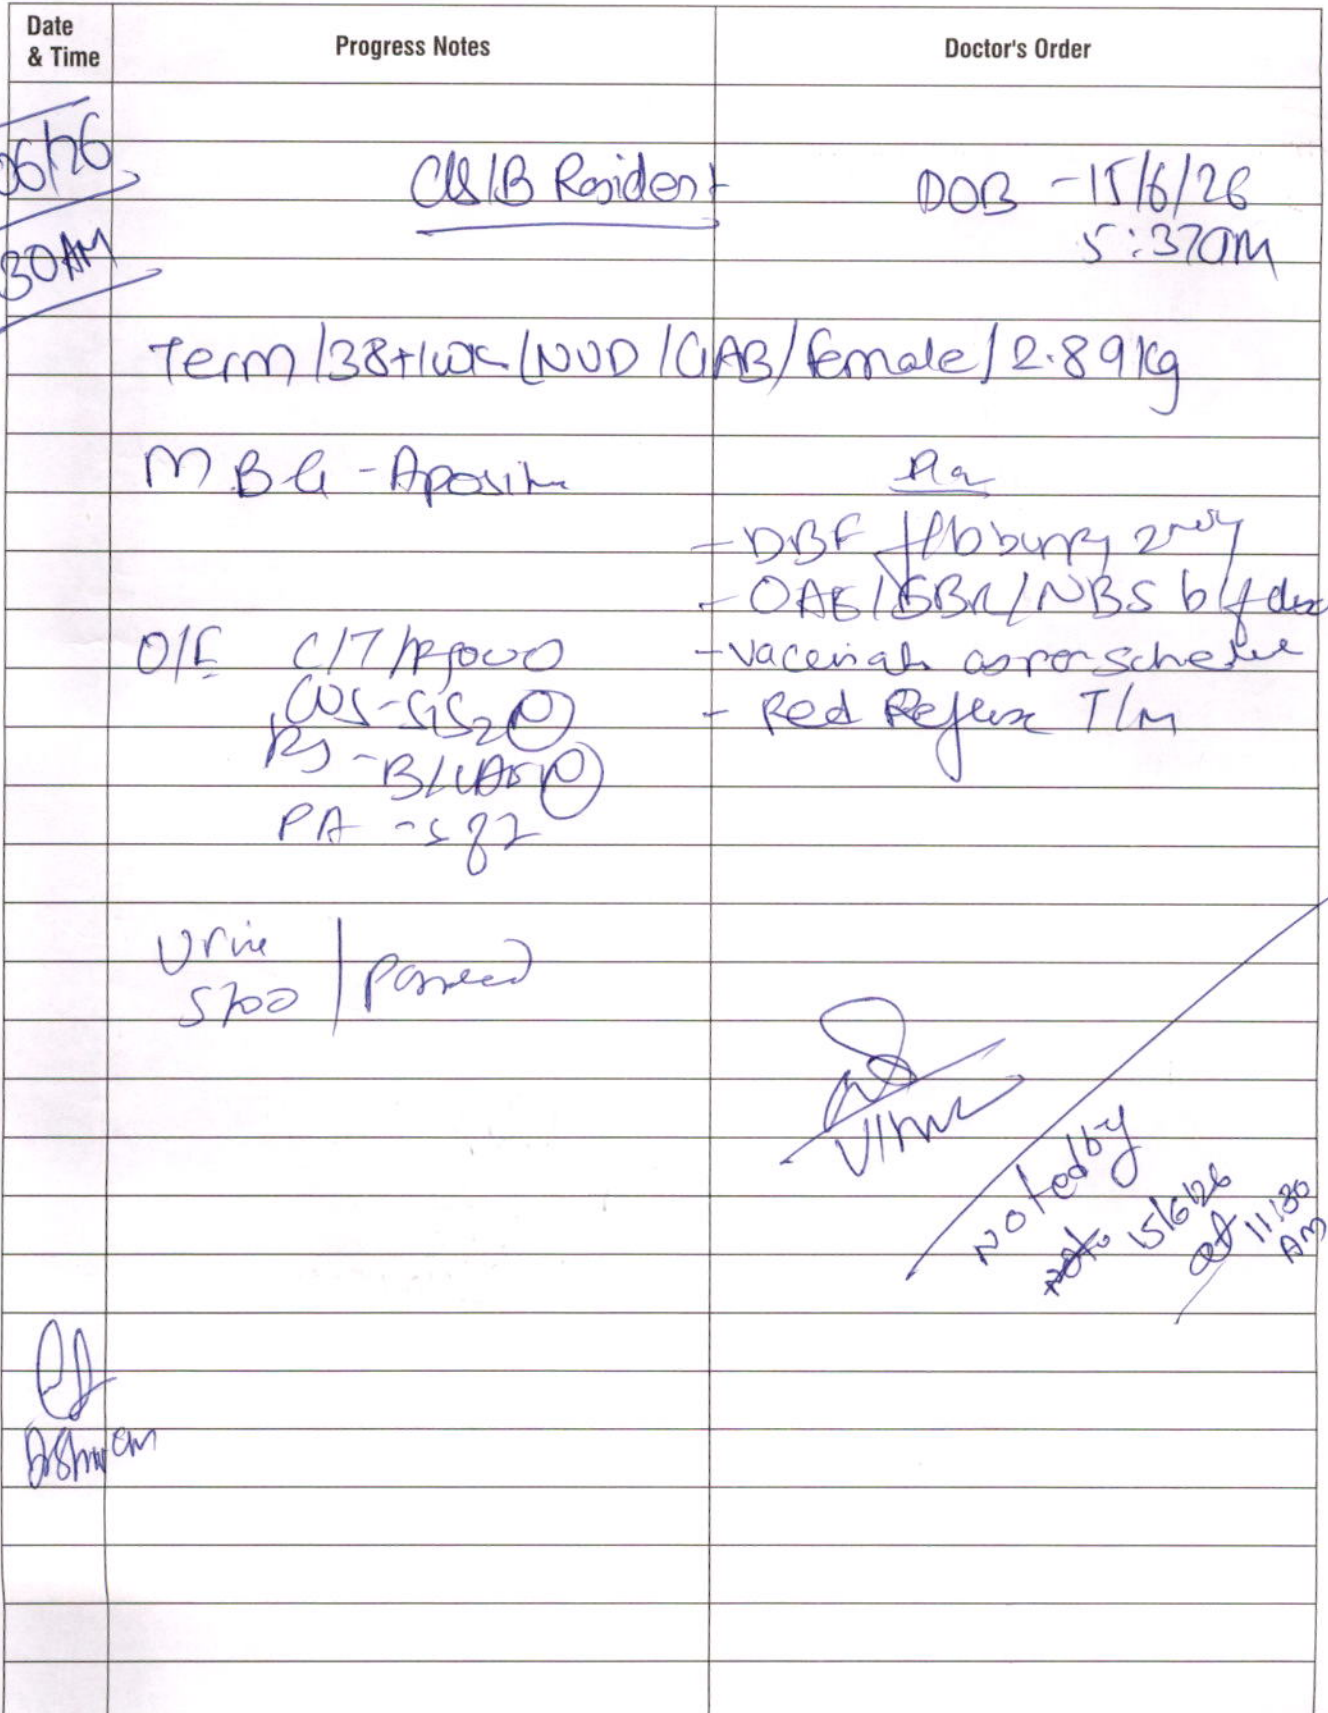 Date & Time
Progress Notes
Doctor's Order
06/26
30AM
C/S/B Resident
DOB - 15/6/26
5:37am
Term / 38+1wk / NVD / CIAB / female / 2.89kg
MBG - A positive
Plan
- DBF f/b burping 2nd
- OAE / SBR / NBS b/f
- Vaccination as per schedule
- Red Reflex T/m
O/E C/T/A good
CVS - S1S2 N
RS - B/L AE N
PA - soft
Urine
Stool | passed
Noted by
15/6/26
at 11:30
AM